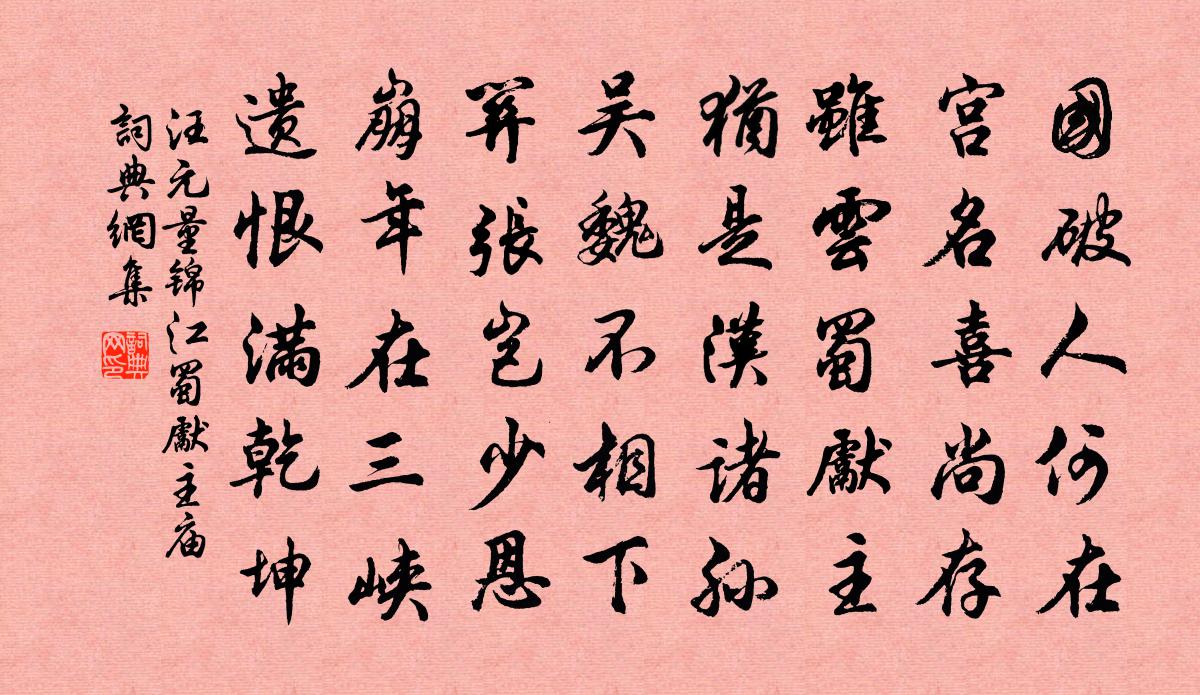 國破人何在
宮名喜尚存
雖雲蜀獻主
猶是漢諸孫
吳魏不相下
關張豈少恩
崩年在三峽
遺恨滿乾坤
汪元量錦江蜀獻主庙
詞典網集
詞典网印